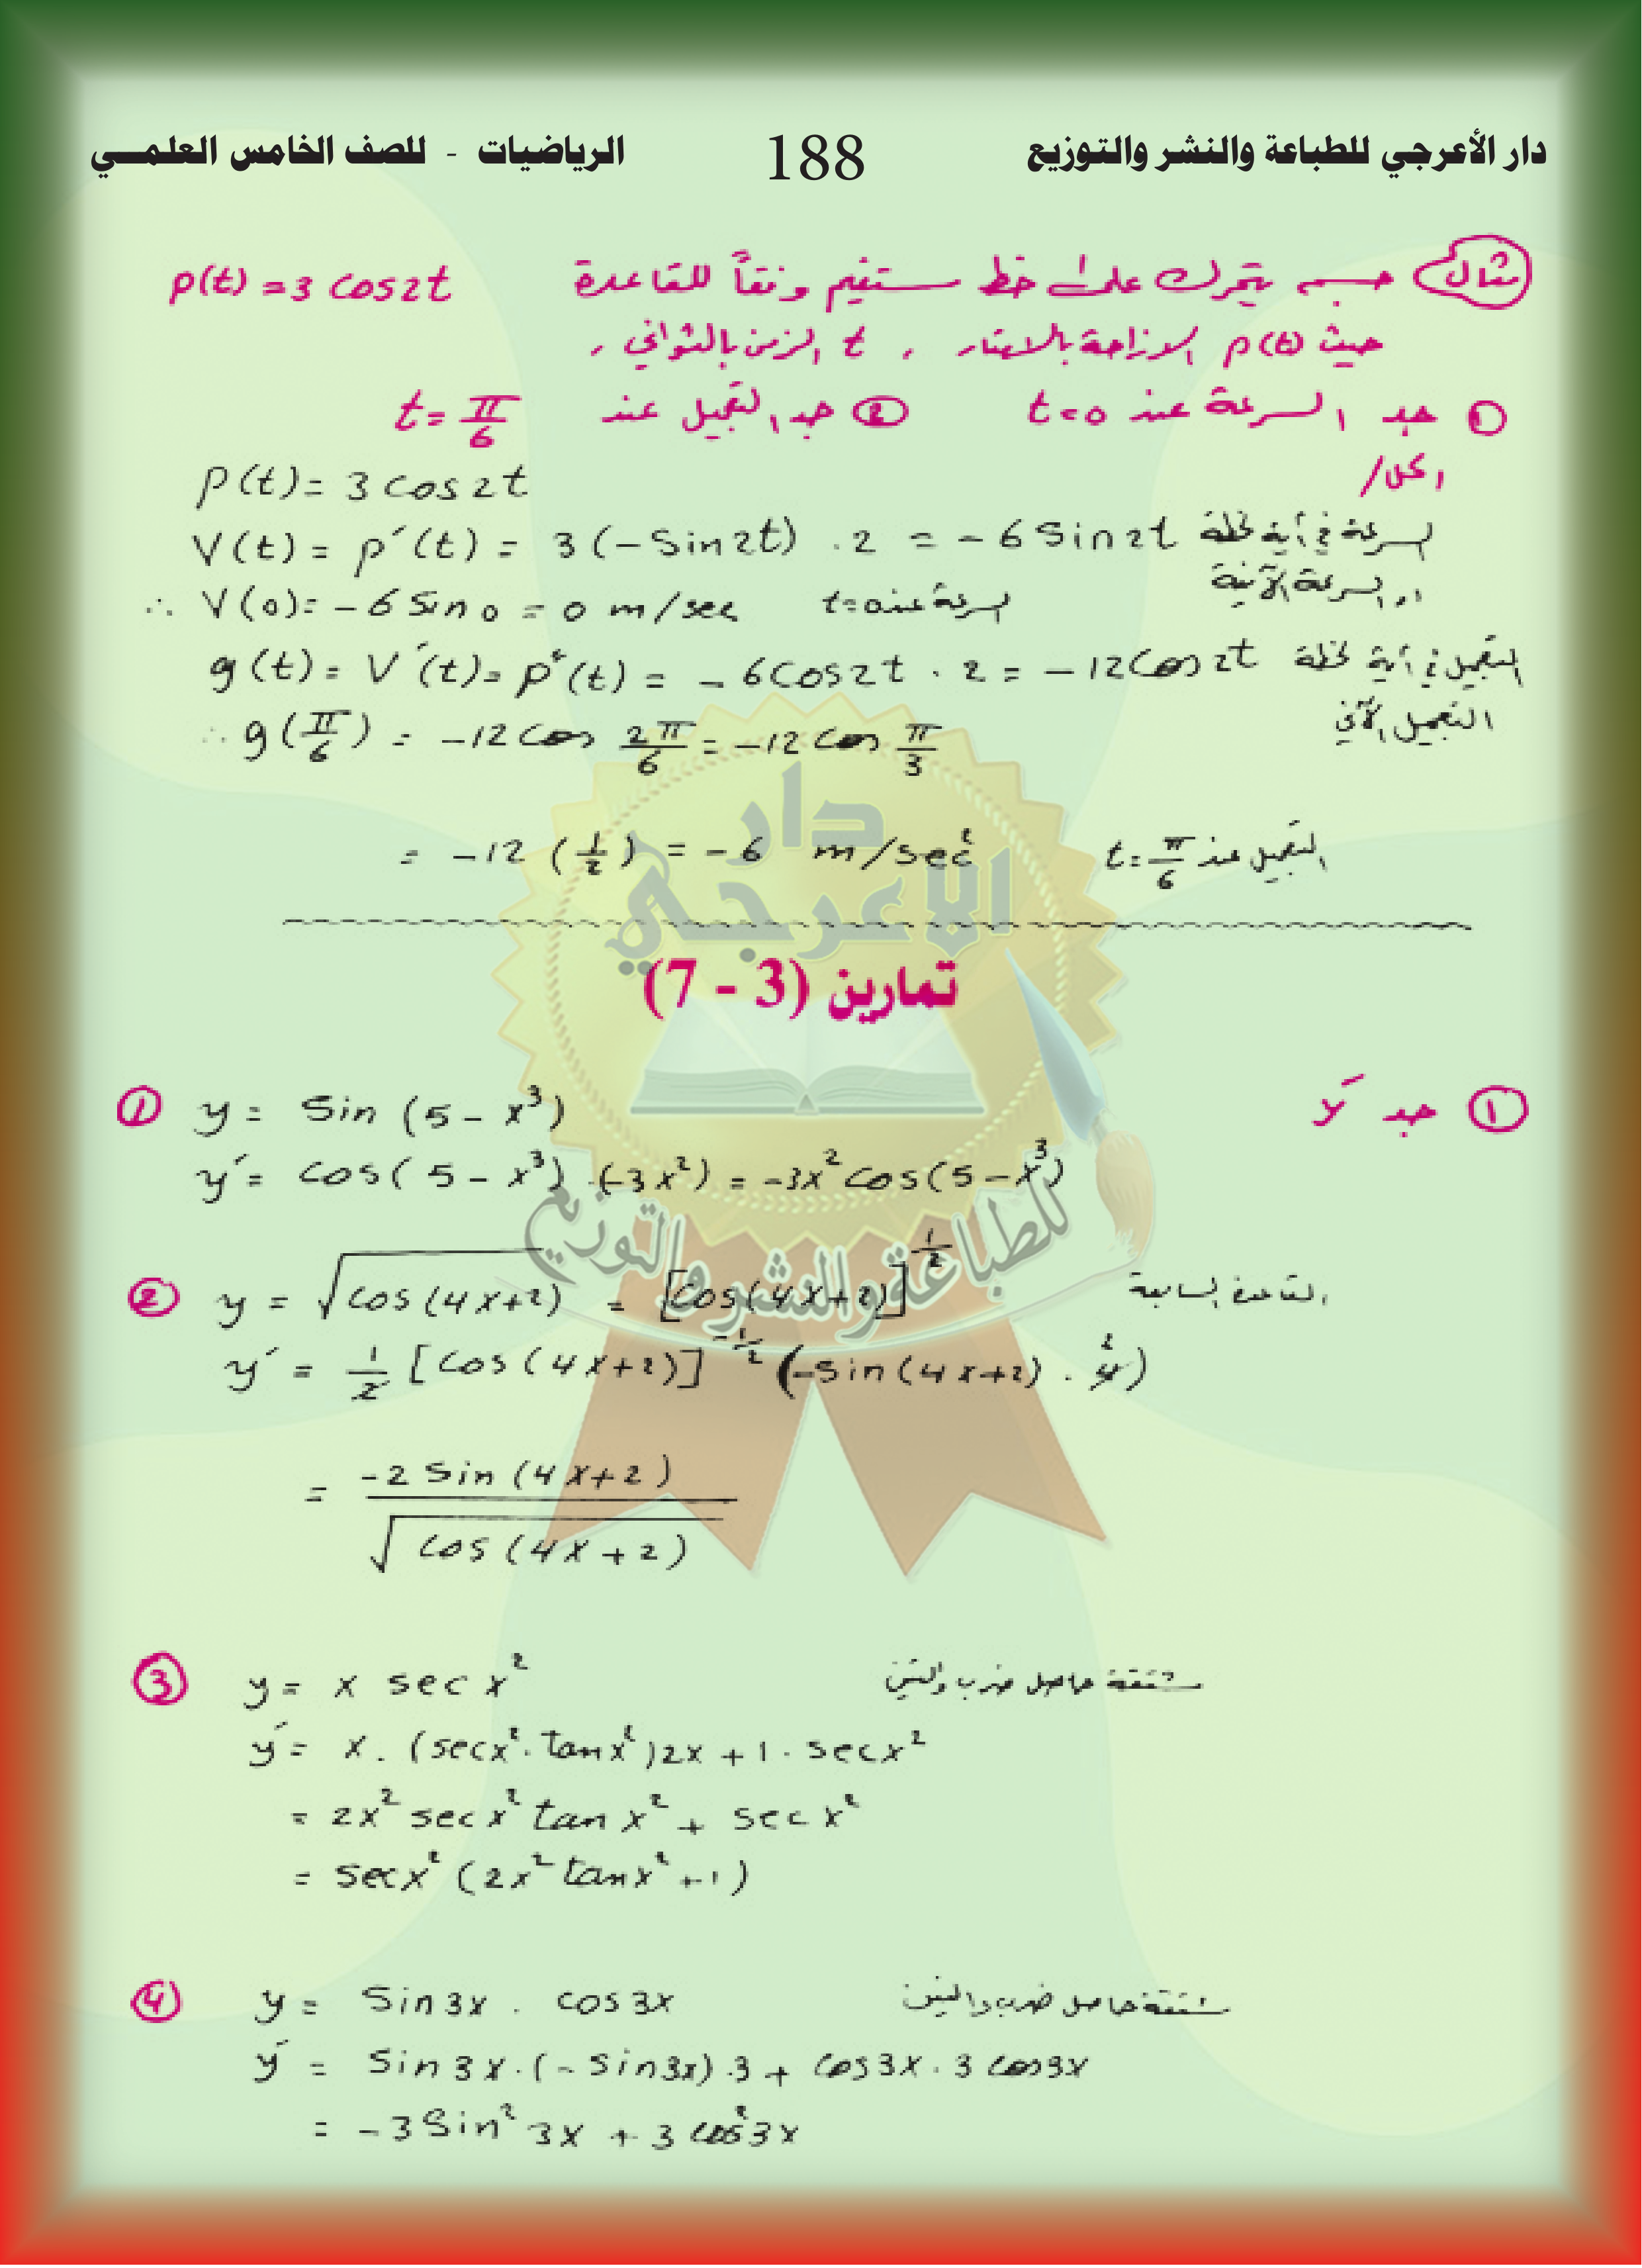 دار الأعرجي للطباعة والنشر والتوزيع 188 الرياضيات - للصف الخامس العلمـــي
مثال جسم يتحرك على خط مستقيم وفقاً للقاعدة P(t) = 3 cos2t
حيث P(t) الازاحة بالامتار ، t الزمن بالثواني ،
① جد السرعة عند t=0 ② جد التعجيل عند t = π/6
الحل /
P(t) = 3 cos 2t
V(t) = p′(t) = 3 (− sin 2t) . 2 = − 6 sin 2t السرعة في أية لحظة
او السرعة الآنية
∴ V(0) = − 6 sin 0 = 0 m/sec السرعة عند t=0
g(t) = V′(t) = p″(t) = − 6 cos2t . 2 = − 12 cos 2t التعجيل في أية لحظة
التعجيل الآني
∴ g(π/6) = −12 cos 2π/6 = −12 cos π/3
= −12 (1/2) = −6 m/sec² التعجيل عند t = π/6
تمارين (3 - 7)
① جد y′
① y = sin (5 − x³)
y′ = cos(5 − x³) . (−3x²) = −3x² cos(5 − x³)
② y = √cos(4x+2) = [cos(4x+2)]^½ القاعدة السابعة
y′ = 1/2 [cos(4x+2)]^−½ (−sin(4x+2) . 4) 2
= −2 sin (4x+2) / √cos (4x+2)
③ y = x sec x² مشتقة حاصل ضرب دالتين
y′ = x . (sec x² . tan x²) 2x + 1 . sec x²
= 2x² sec x² tan x² + sec x²
= sec x² (2x² tan x² + 1)
④ y = sin 3x . cos 3x مشتقة حاصل ضرب دالتين
y′ = sin 3x . (− sin 3x) . 3 + cos 3x . 3 cos 3x
= − 3 sin² 3x + 3 cos² 3x
دار
الاعرجي
للطباعة والنشر والتوزيع